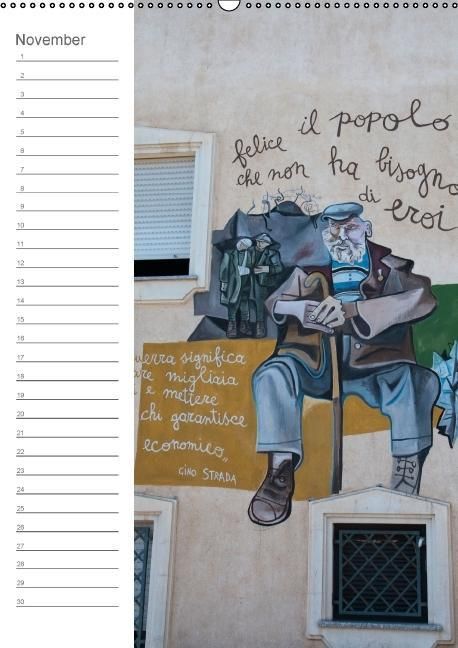 November
1
2
3
4
5
6
7
8
9
10
11
12
13
14
15
16
17
18
19
20
21
22
23
24
25
26
27
28
29
30
felice il popolo
che non ha bisogno
di eroi
significa
migliaia
e mettere
chi garantisce
economico„
GINO STRADA